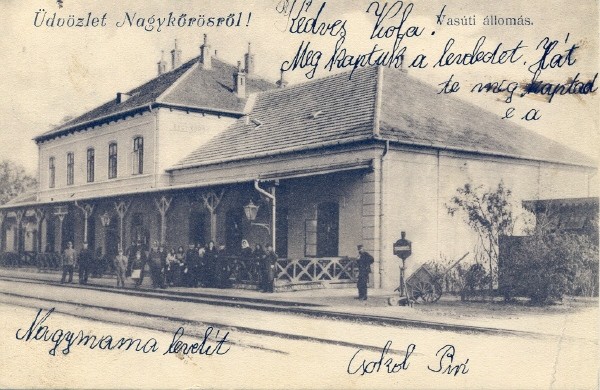 Üdvözlet Nagykőrösről!
Vasúti állomás.
Kedves Kofa!
Meg kaptuk a levledet. Hát
te meg kaptad
e a
Nagymama levelét
Csokol Piri